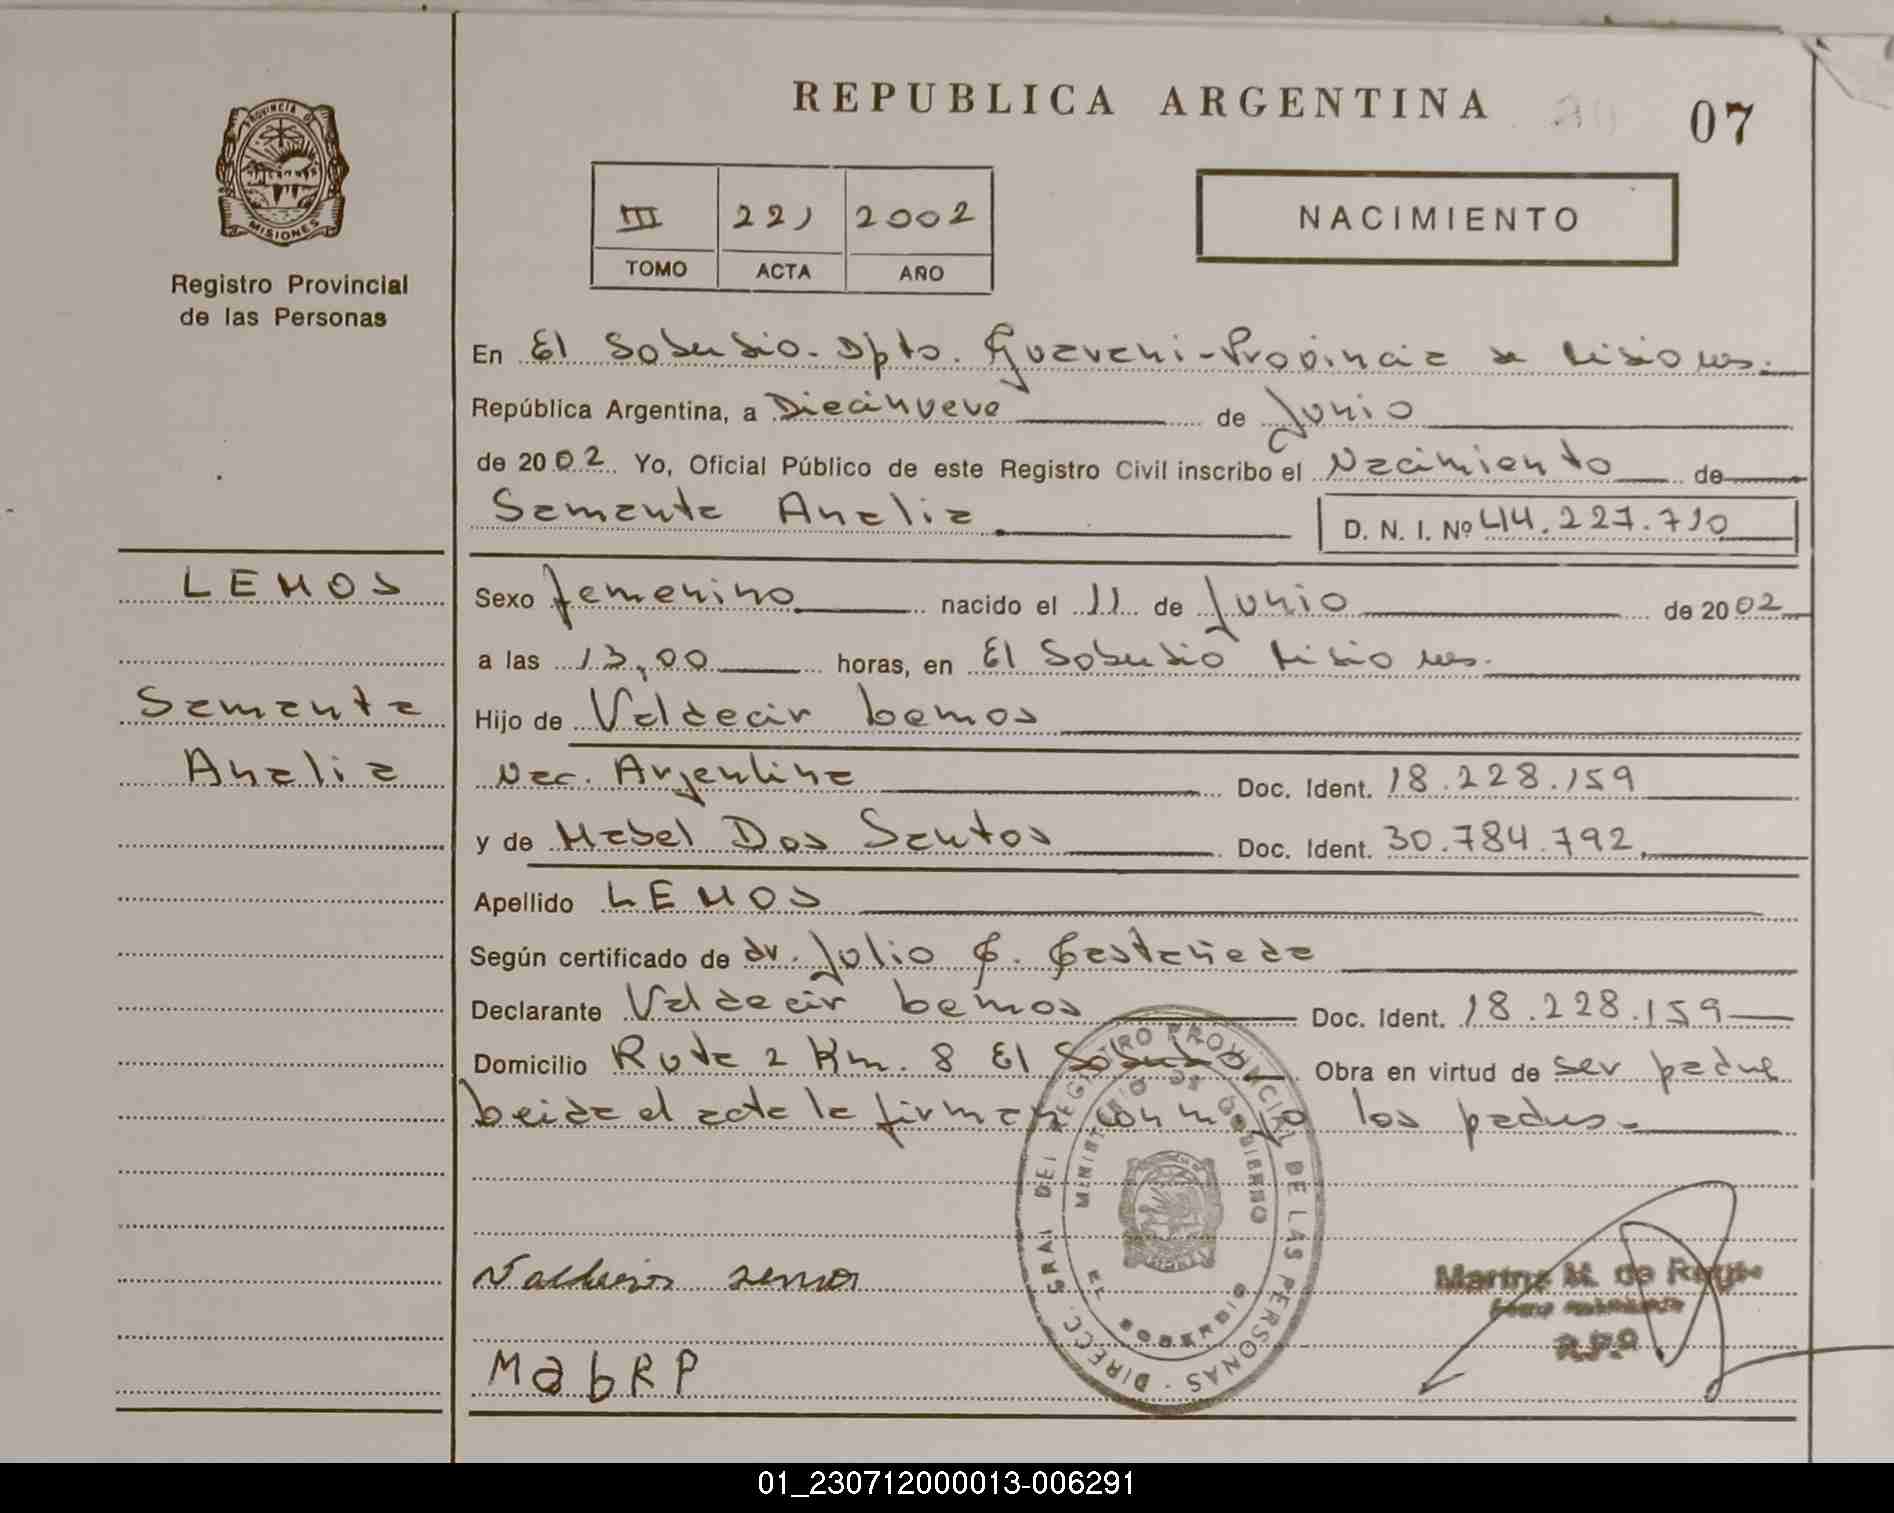 REPUBLICA ARGENTINA
07
PROVINCIA DE
MISIONES
Registro Provincial
de las Personas
III 221 2002
TOMO ACTA AÑO
NACIMIENTO
En El Soberbio - Dpto. Guarani - Provincia de Misiones.
República Argentina, a Diecinueve de Junio
de 2002 Yo, Oficial Público de este Registro Civil inscribo el Nacimiento de
Samanta Analia
D. N. I. Nº 44.227.710
LEMOS
Samanta
Analia
Sexo femenino nacido el 11 de Junio de 2002
a las 13,00 horas, en El Soberbio Misiones.
Hijo de Valdecir Lemos
Nac. Argentina Doc. Ident. 18.228.159
y de Mabel Dos Santos Doc. Ident. 30.784.792
Apellido LEMOS
Según certificado de dr. Julio C. Castañeda
Declarante Valdecir Lemos Doc. Ident. 18.228.159
Domicilio Ruta 2 Km. 8 El Soberbio Obra en virtud de ser padre
Leida el acta la firman conmigo los padres.
DIRECC. GRAL DEL REGISTRO PROVINCIAL DE LAS PERSONAS
MINISTERIO DE GOBIERNO
EL SOBERBIO
Marina M. de
R.P.P
MabRP
01_230712000013-006291